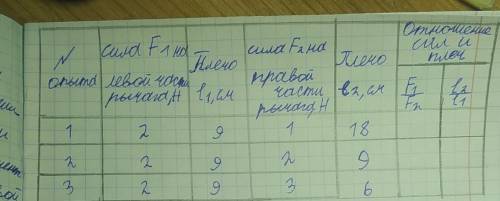 N опыта
сила F1 на левой части рычага, Н
Плечо l1, см
сила F2 на правой части рычага, Н
Плечо l2, см
Отношение сил и плеч
F1/F2
l2/l1
1 2 9 1 18
2 2 9 2 9
3 2 9 3 6